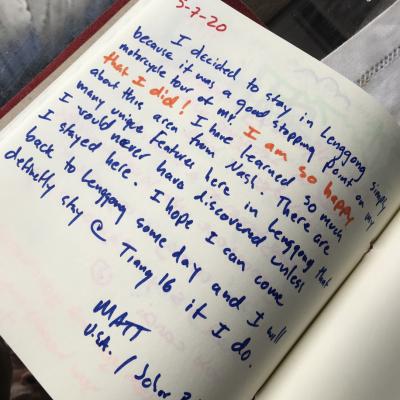 5-7-20
I decided to stay in Lenggong simply
because it was a good stopping point on my
motorcycle tour of my. I am so happy
that I did! I have learned so much
about this area from Nash. There are
many unique features here in Lenggong that
I would never have discovered unless
I stayed here. I hope I can come
back to Lenggong some day and I will
definetly stay @ Tiang 16 if I do.
MATT
U.S.A. / Solor